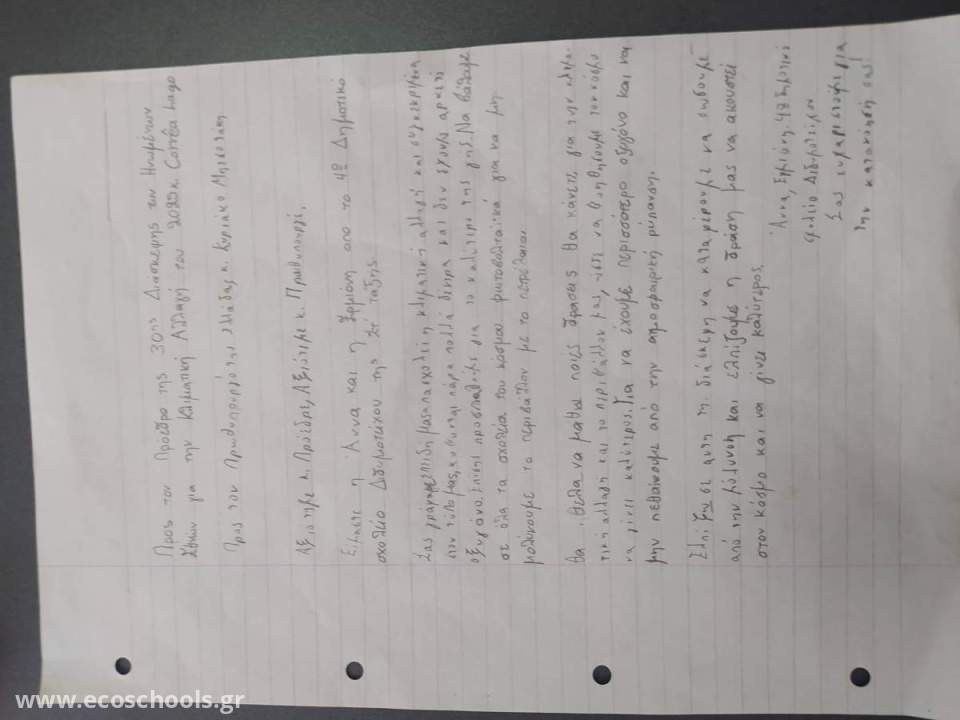 Προς τον Πρόεδρο της 30ης Διάσκεψης των Ηνωμένων
Εθνών για την Κλιματική Αλλαγή του 2025 κ. Corrêa Lago
Προς τον Πρωθυπουργό της Ελλάδας κ. Κυριάκο Μητσοτάκη
Αξιότιμε κ. Πρόεδρε, Αξιότιμε κ. Πρωθυπουργέ,
Είμαστε η Άννα και η Ερμιόνη από το 4ο Δημοτικό
σχολείο Διδυμοτείχου της Στ τάξης
Σας γράφουμε επειδή μας απασχολεί η κλιματική αλλαγή και συγκεκριμένα
στον τόπο μας, κόβωνται πάρα πολλά δέντρα και δεν έχουμε αρκετό
οξυγόνο. Επίσης προσπαθούμε για το καλύτερο της γης. Να βάλουμε
σε όλα τα σχολεία του κόσμου φωτοβολταϊκά για να μη
μολύνουμε το περιβάλλον με το πετρέλαιο.
Θα θέλα να μάθω ποιές δράσεις θα κάνετε για την κλιμα-
τική αλλαγή και το περιβάλλον μας, ώστε να βοηθήσουμε τον κόσμο
να γίνει καλύτερος. Για να έχουμε περισσότερο οξυγόνο και να
μην πεθαίνουμε από την ατμοσφαιρική ρύπανση.
Ελπίζω σε αυτή τη διάσκεψη να καταφέρουμε να σωθούμε
από την μόλυνση και ελπίζουμε η δράση μας να ακουστεί
στον κόσμο και να γίνει καλύτερος.
Άννα, Ερμιόνη, 4ο Δημοτικό
σχολείο Διδυμοτείχου
Σας ευχαριστούμε για
την κατανόησή σας!
www.ecoschools.gr